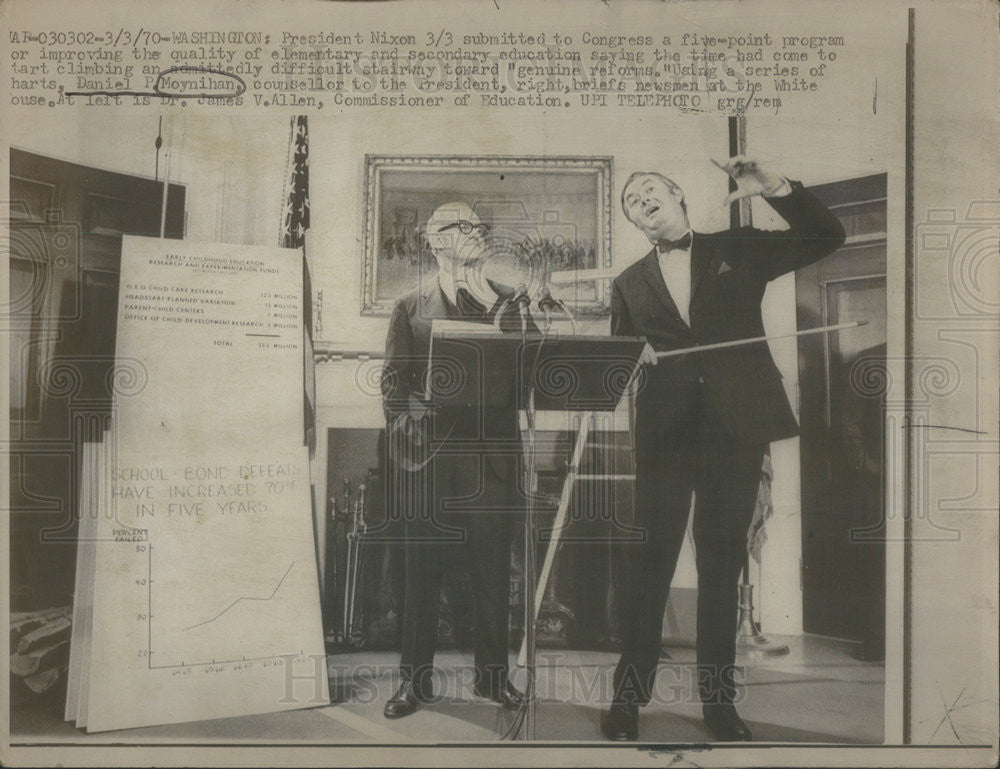 AP-030302-3/3/70-WASHINGTON: President Nixon 3/3 submitted to Congress a five-point program
or improving the quality of elementary and secondary education saying the time had come to
tart climbing an admittedly difficult stairway toward "genuine reforms."Using a series of
harts, Daniel P. Moynihan, counsellor to the President, right, briefs newsmen at the White
ouse. At left is Dr. James V.Allen, Commissioner of Education. UPI TELEPHOTO grg/rem
EARLY CHILDHOOD EDUCATION
RESEARCH AND EXPERIMENTATION FUNDS
O.E.O CHILD CARE RESEARCH
HEADSTART PLANNED VARIATION
PARENT-CHILD CENTERS 7 MILLION
OFFICE OF CHILD DEVELOPMENT RESEARCH 5 MILLION
TOTAL $52 MILLION
SCHOOL BOND DEFEATS
HAVE INCREASED 70%
IN FIVE YEARS
PERCENT
FAILED
50
40
30
20
HISTORIC IMAGES